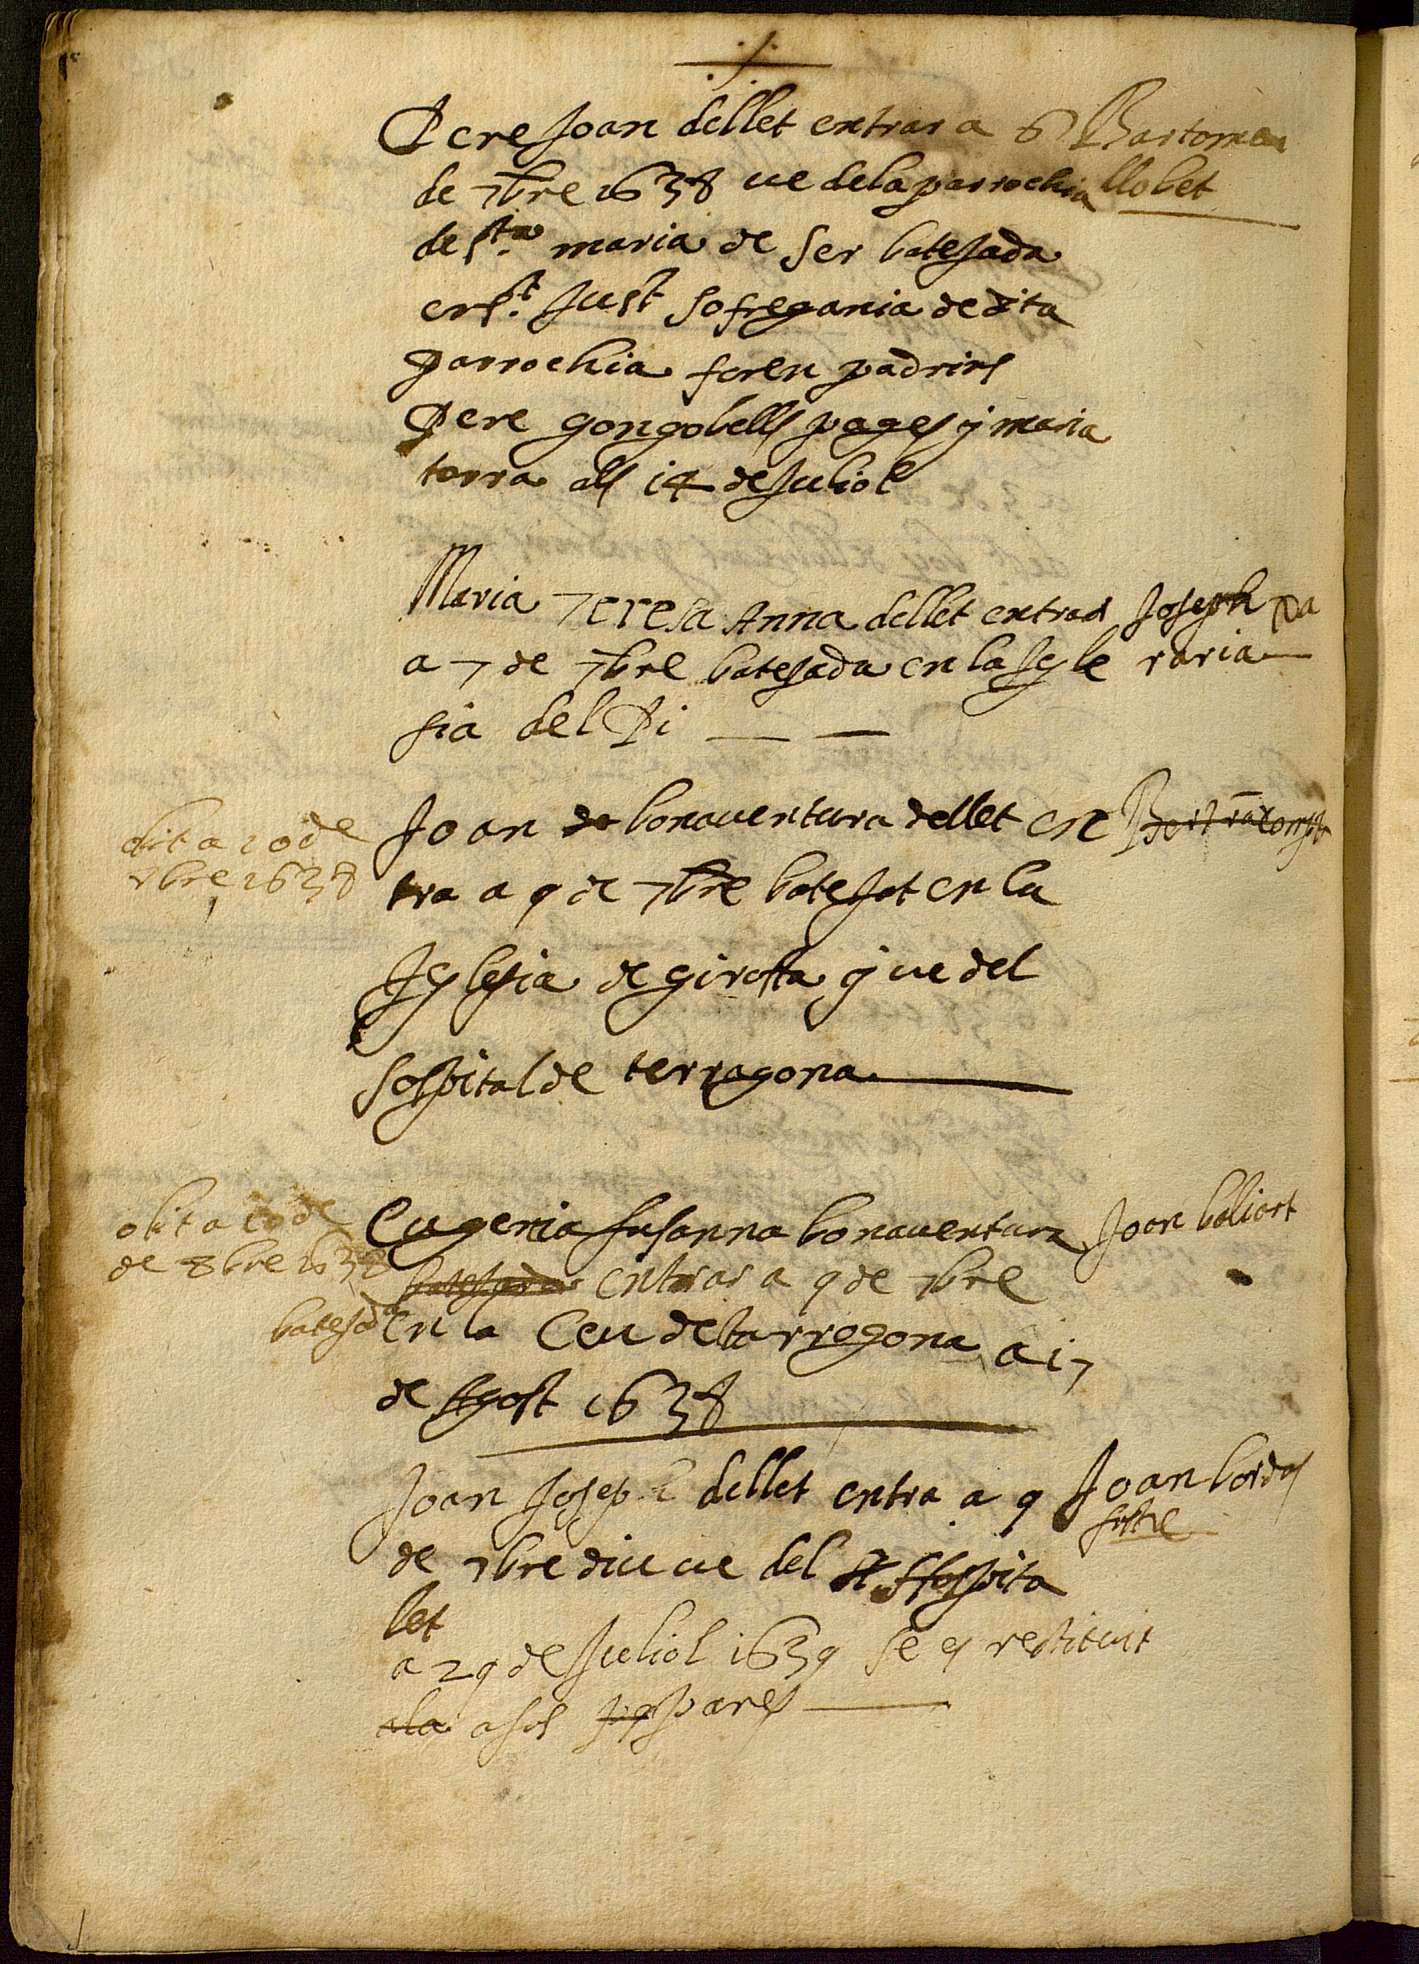 Pere Joan dellet entrar a 6 Bartomeu
de 7bre 1638 ve de la parrochia llobet
de Sta maria de ser batejada
en St Just sofregania de dita
parrochia foren padrins
Pere gongobells pages y maria
torra als 14 de Juliol
Maria Teresa Anna dellet entrad Joseph Pa
a 7 de 7bre batejada en la Jgle raria
sia del Pi
Joan de bonaventura dellet en
obit a 20 de
7bre 1638
tra a 9 de 7bre batejat en la
Jglesia de girona y ve del
sospital de terragona
Eugenia Susanna bonaventura Joan baliart
obit a 20 de
de 8bre 1638
batejada entrar a 9 de 7bre
batejada en la Ceu de tarragona a 17
de Agost 1638
Joan Joseph dellet entra a 9 Joan bordas
sastre
de 7bre diu ve del Hospita
let
a 29 de Juliol 1639 se es restituit
ala a sos pares